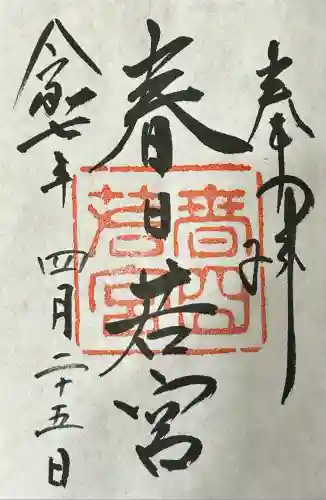 奉拝
春日若宮
春日若宮
令和七年四月二十五日